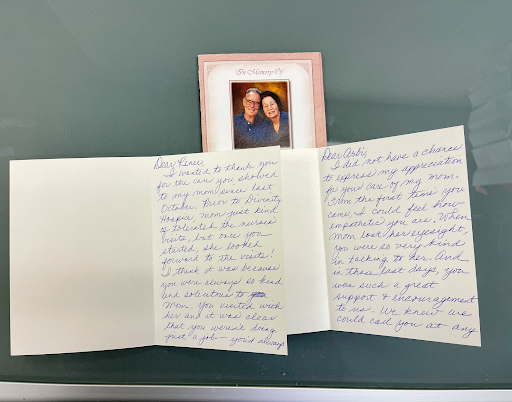 In Memory Of
Dear
I wanted to thank you
for the care you showed
to my mom since last
October. Prior to Divinity
Hospice mom just kind
of tolerated the nurses
visits, but once you
started, she looked
forward to the visits!
I think it was because
you were always so kind
and solicitous to
Mom. You visited with
her and it was clear
that you weren't doing
just a job – you'd always
Dear
I did not have a chance
to express my appreciation
for your care of my mom.
From the first time you
came I could feel how
empathetic you are. When
Mom lost her eyesight,
you were so very kind
in talking to her. And
in those last days, you
were such a great
support & encouragement
to us. We knew we
could call you at any